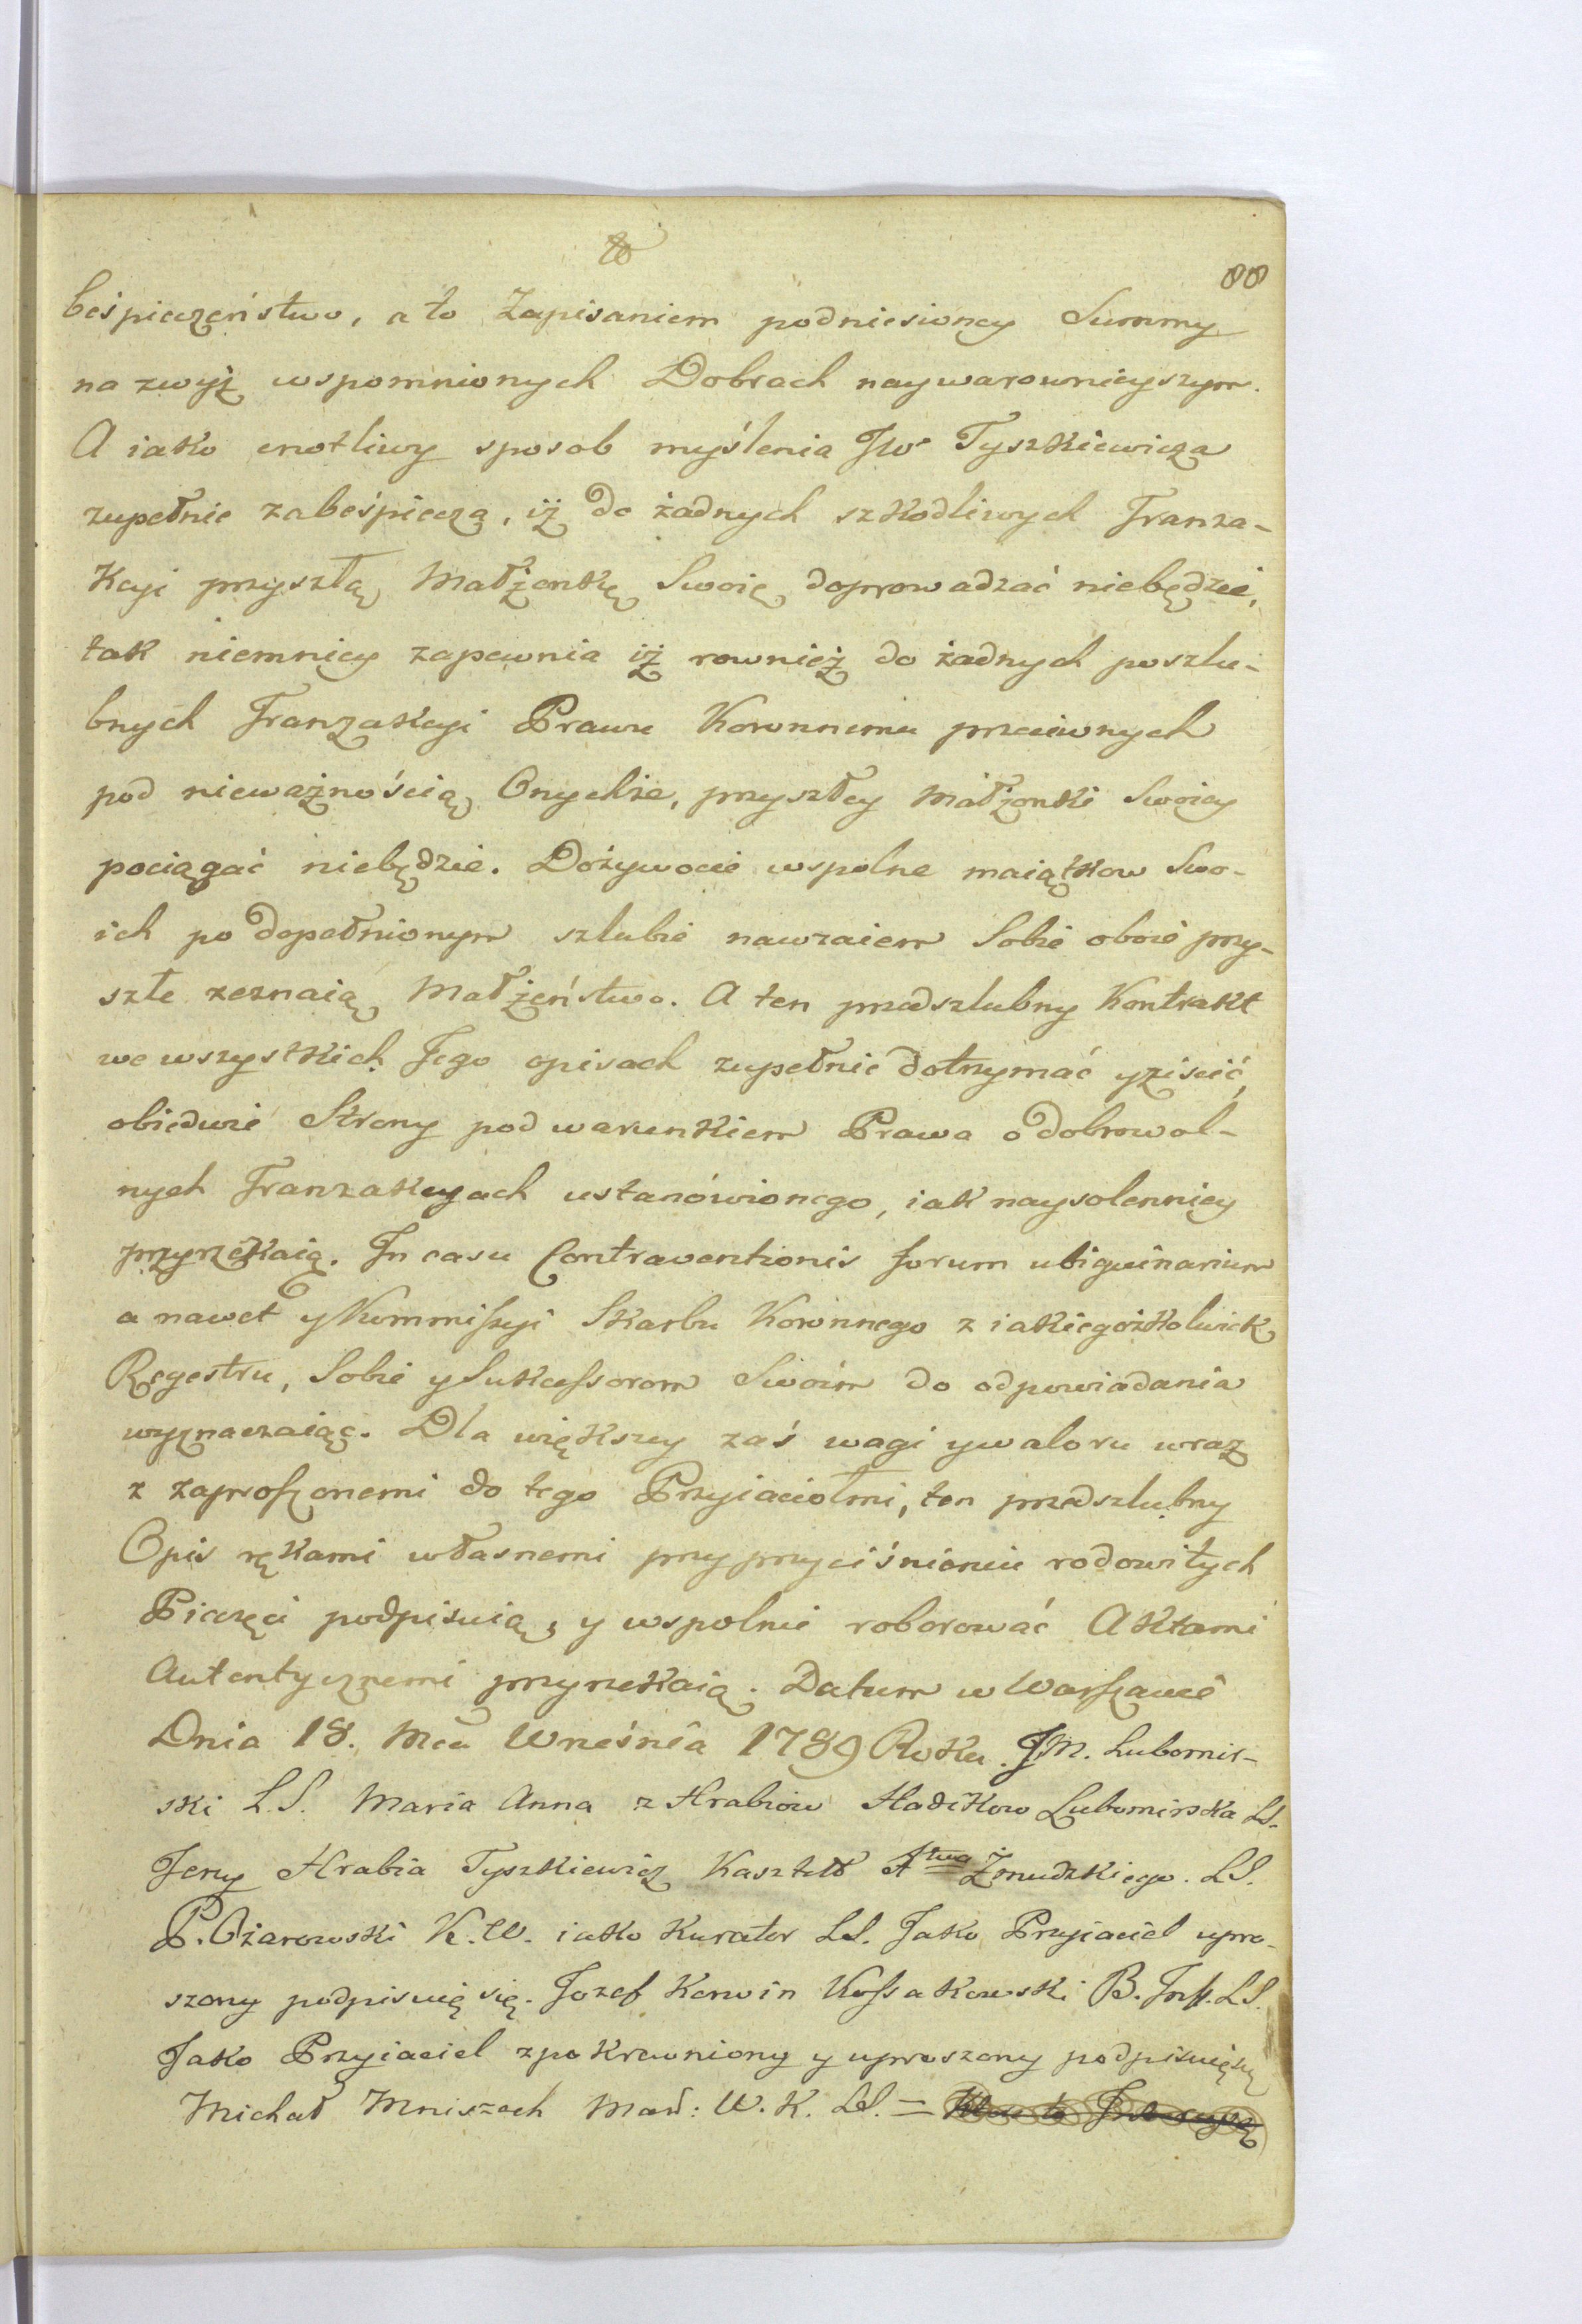 88
beśpieczeństwo, a to Zapisaniem podniesioney Summy
na zwyż wspomnionych Dobrach naywarownieyszym.
A iako cnotliwy sposob myślenia JW Tyszkiewicza
zupełnie zabeśpiecza, iż do żadnych szkodliwych Tranza-
kcyi przyszłą Małżonkę Swoię doprowadzać niebędzie,
tak niemniey zapewnia iż rownież do żadnych poszlu-
bnych Tranzakcyi Prawu Koronnemu przeciwnych
pod nieważnością Onychże, przyszłey Małżonki Swoiey
pociągać niebędzie. Dożywocie wspolne maiątkow Swo-
ich po dopełnionym szlubie nawzaiem Sobie oboie przy-
szłe zeznaią Małżeństwo. A ten przedszlubny Kontrakt
we wszystkich Jego opisach zupełnie dotrzymać y ziścić,
obiedwie Strony pod warunkiem Prawa o dobrowol-
nych Tranzakcyach ustanowionego, iak naysolenniey
przyrzekaią. In casu Contraventionis forum ubiquinarium
a nawet y Kommissyi Skarbu Koronnego z iakiegożkolwiek
Regestru, Sobie y Sukcessorom Swoim do odpowiadania
wyznaczaiąc. Dla większey zaś wagi y waloru wraz
z zaproszonemi do tego Przyiaciołmi, ten przedszlubny
Opis rękami własnemi przy przyciśnieniu rodowitych
Pieczęci podpisuią, y wspolnie roborować Aktami
Autentycznemi przyrzekaią. Datum w Warszawie
Dnia 18. Mca Wrześnîa 1789 Roku. JM. Lubomir-
ski L.S. Maria Anna z Hrabiow Hadikow Lubomirska LS.
Jerzy Hrabia Tyszkiewicz Kasztell Xtwa Żmudzkiego. LS.
P. Ożarowski K.W. iako Kurator LS. Jako Przyiaciel upro-
szony podpisuię się. Jozef Korwin Kossakowski B. Infl. LS.
Jako Przyiaciel zpokrewniony y uproszony podpisuię się
Michał Mniszech Mar: W. K. LS. =